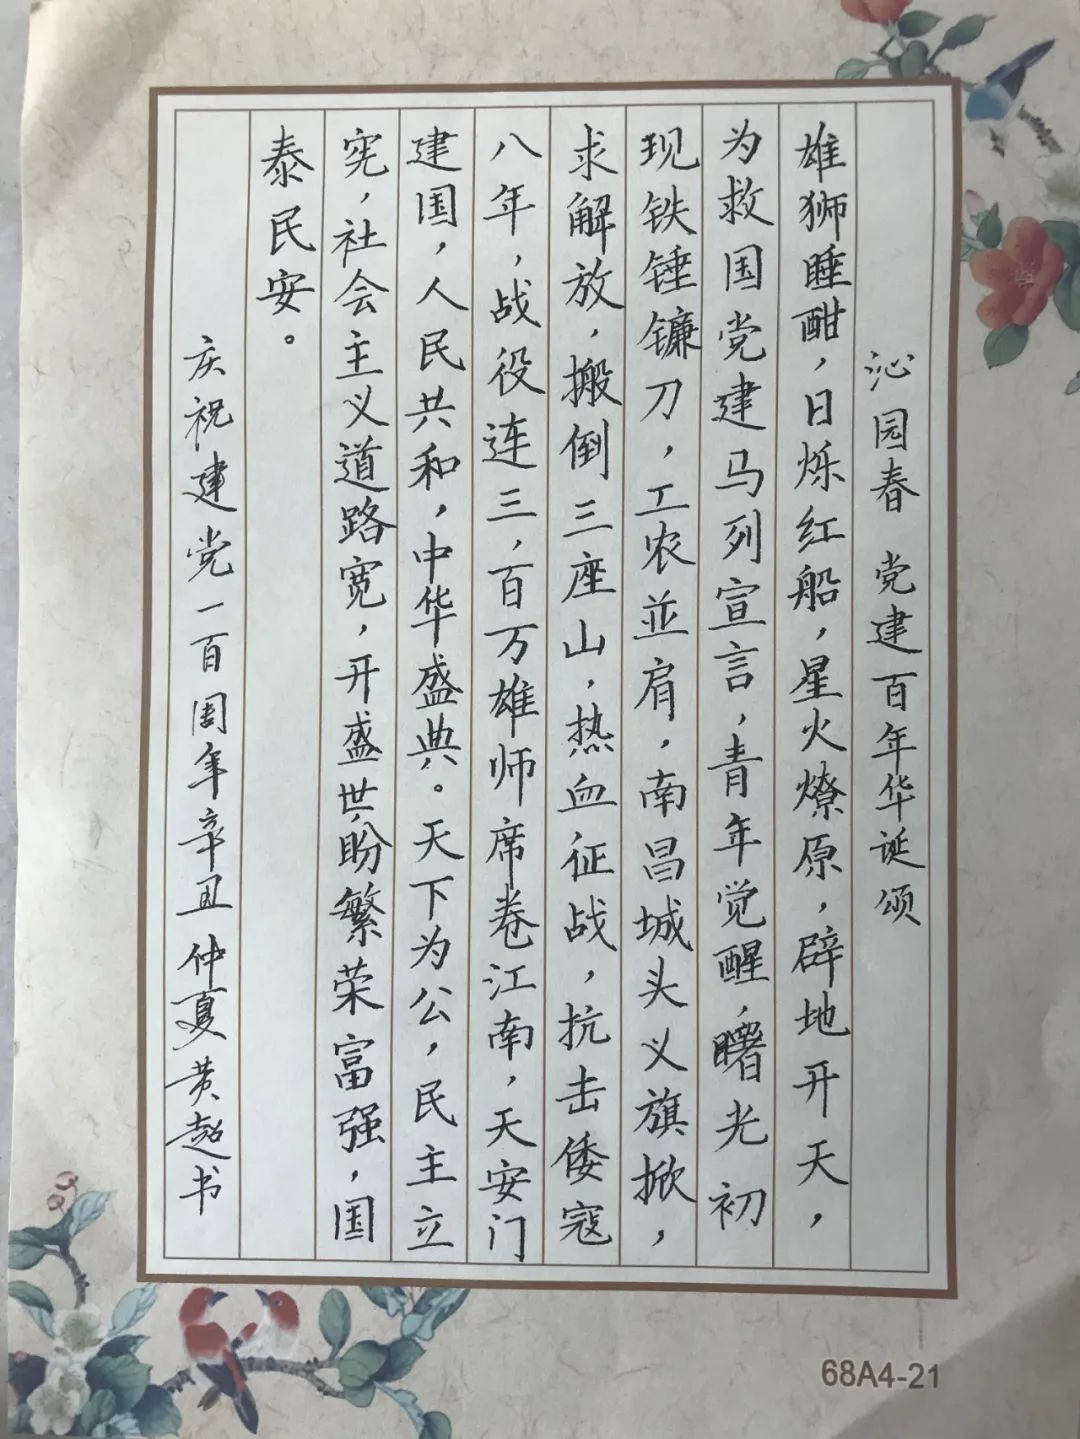 沁园春 党建百年华诞颂
雄狮睡酣，日烁红船，星火燎原，辟地开天，
为救国党建马列宣言，青年觉醒，曙光初
现铁锤镰刀，工农並肩，南昌城头义旗掀，
求解放，搬倒三座山，热血征战，抗击倭寇
八年，战役连三，百万雄师席卷江南，天安门
建国，人民共和，中华盛典。天下为公，民主立
宪，社会主义道路宽，开盛世，盼繁荣富强，国
泰民安。
庆祝建党一百周年辛丑仲夏黄超书
68A4-21